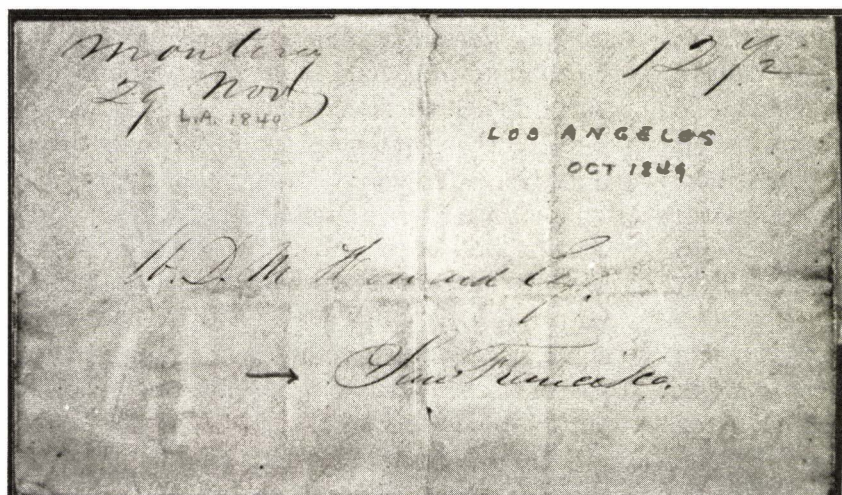 Monterey
29 Nov
L.A. 1849
12 1/2
LOS ANGELOS
OCT 1849
W. D. M. Howard Esq.
→ San Francisco.